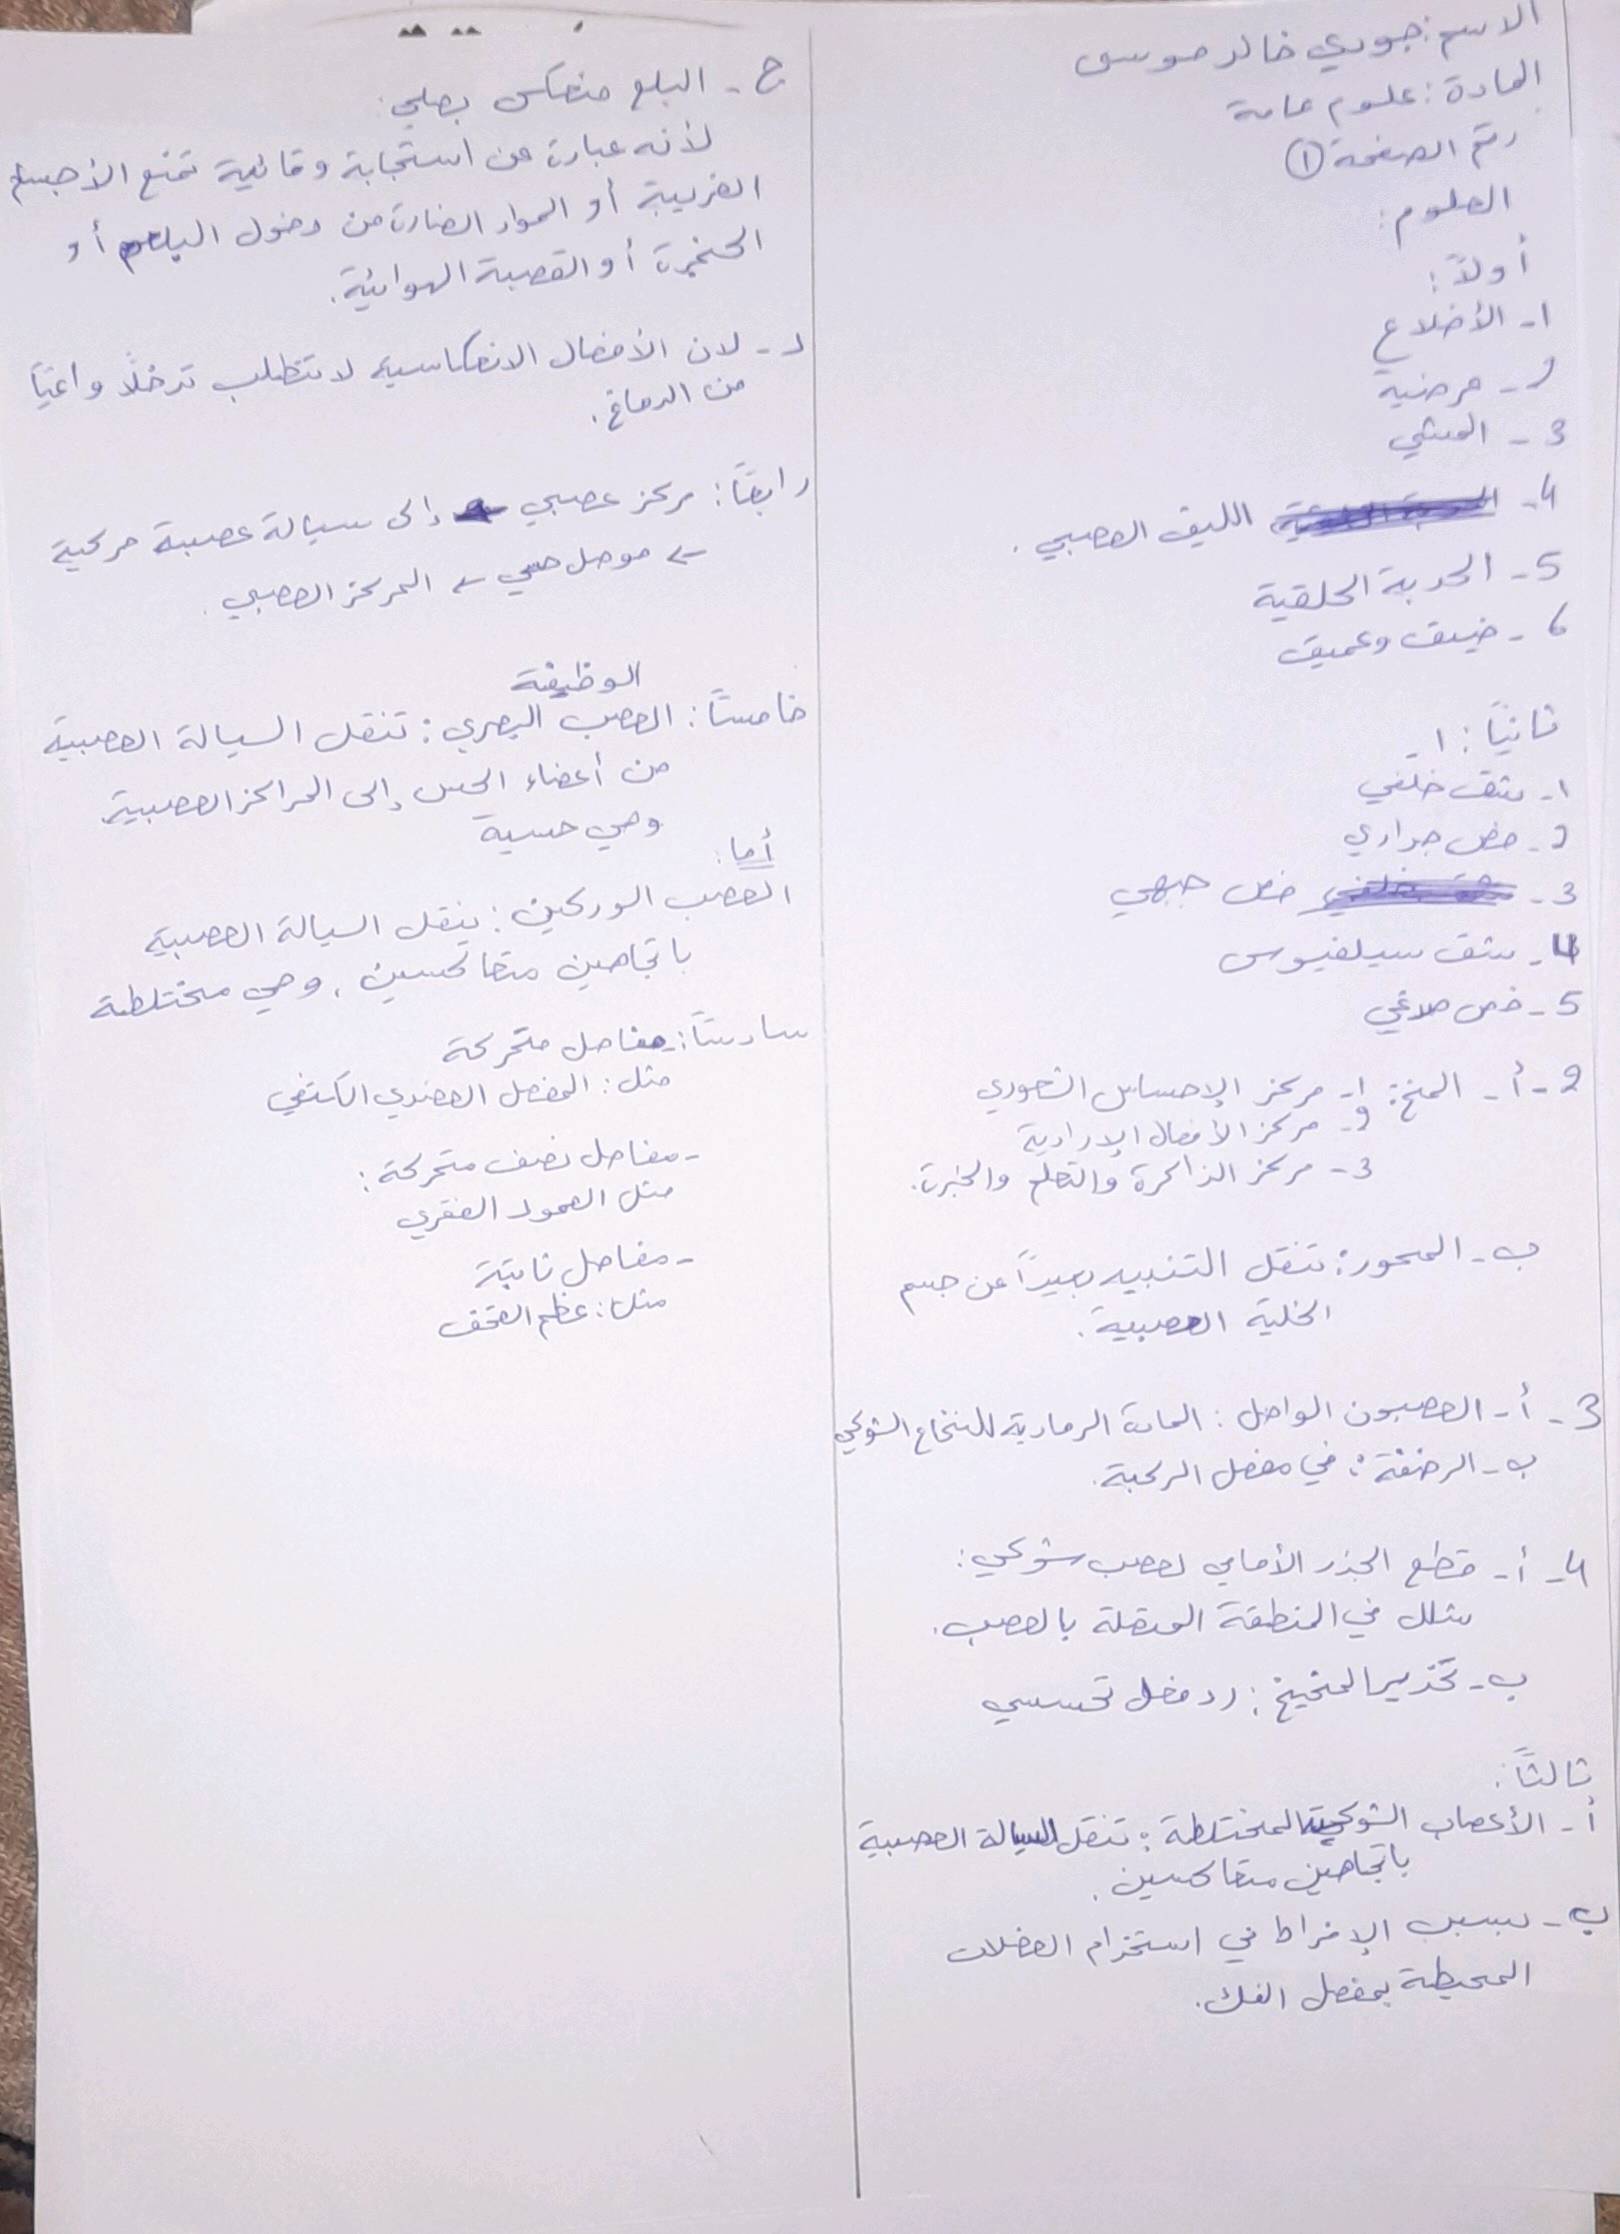 الاسم: جودي خالد موسى
المادة: علوم عامة
رقم الصفحة ①
العلوم:
أولاً:
١- الأضلاع
2- مرضية
3- المشي
4- الليف العصبي.
5- الحدبة الحلقية
6- ضيق وعميق
ثانياً: ١-
١- شق خلفي
2- فص جداري
3- فص جبهي
4- شق سيلفيوس
5- فص صدغي
2- أ- المخ: ١- مركز الإحساس الشعوري
2- مركز الأفعال الإرادية
3- مركز الذاكرة والتعلم والخبرة.
ب- المحور: تنقل التنبيه بعيداً عن جسم
الخلية العصبية.
3- أ- العصبون الواصل: المادة الرمادية للنخاع الشوكي
ب- الرضفة: في مفصل الركبة.
4- أ- قطع الجذر الأمامي لعصب شوكي:
شلل في المنطقة المتصلة بالعصب.
ب- تخدير المخيخ: رد فعل تحسسي
ثالثاً:
أ- الأعصاب الشوكية المختلطة: تنقل السيالة العصبية
باتجاهين متعاكسين.
ب- بسبب الإفراط في استخدام العضلات
المحيطة بمفصل الفك.
ج- البلع منعكس بصلي:
لأنه عبارة عن استجابة وقائية تمنع الأجسام
الغريبة أو المواد الضارة من دخول البلعوم أو
الحنجرة أو القصبة الهوائية.
د- لان الأفعال الانعكاسية لا تتطلب تدخلاً واعياً
من الدماغ.
رابعاً: مركز عصبي إلى سيالة عصبة حركية
← موصل حسي ← المركز العصبي.
الوظيفة
خامساً: العصب البصري: تنقل السيالة العصبية
من أعضاء الحس إلى المراكز العصبية
وهي حسية
أما:
العصب الوركين: ينقل السيالة العصبية
باتجاهين متعاكسين، وهي مختلطة
سادساً: مفاصل متحركة
مثل: المفصل العضدي الكتفي
- مفاصل نصف متحركة:
مثل العمود الفقري
- مفاصل ثابتة
مثل: عظم القحف